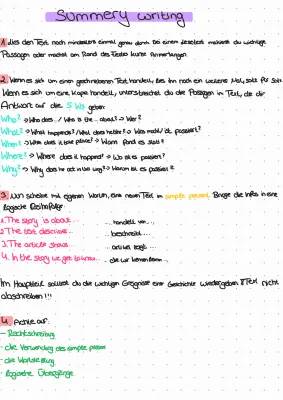 Summery writing
1. Lies den Text noch mindestens einmal genau durch. Bei einem Lesetext markierst du wichtige
Passagen oder machst am Rand des Textes kurze Anmerkungen.
2. Wenn es sich um einen geschriebenen Text handelt, lies ihn noch ein weiteres Mal, Satz für Satz.
Wenn es sich um eine Kopie handelt, unterstreichst du die Passagen im Text, die dir
Antwort auf die 5 Ws geben:
Who? -> Who does.. / Who is the... about? -> Wer?
What? -> What happends? / What does he/she? -> Was macht/ist passiert?
When? -> When does it take place? -> Wann fand es statt?
Where? -> Where does it happend? -> Wo ist es passiert?
Why? -> Why does he act in this way? -> Warum ist es passiert?
3. Nun schreibst mit eigenen Worten, eine neuen Text im simple present. Bringe die Infos in eine
logische Reihenfolge
1. The story is about... ... handelt von...
2. The text describes... ... beschreibt...
3. The article shows... ... artikel zeigt...
4. In the story we get to know... ... die wir kennenlernen...
Im Hauptteil solltest du die wichtigen Ereignisse einer Geschichte wiedergeben !!Text nicht
abschreiben!!!
4. Achte auf:
- Rechtschreibung
- die Verwendung des simple present
- die Wortstellung
- logische Übergänge